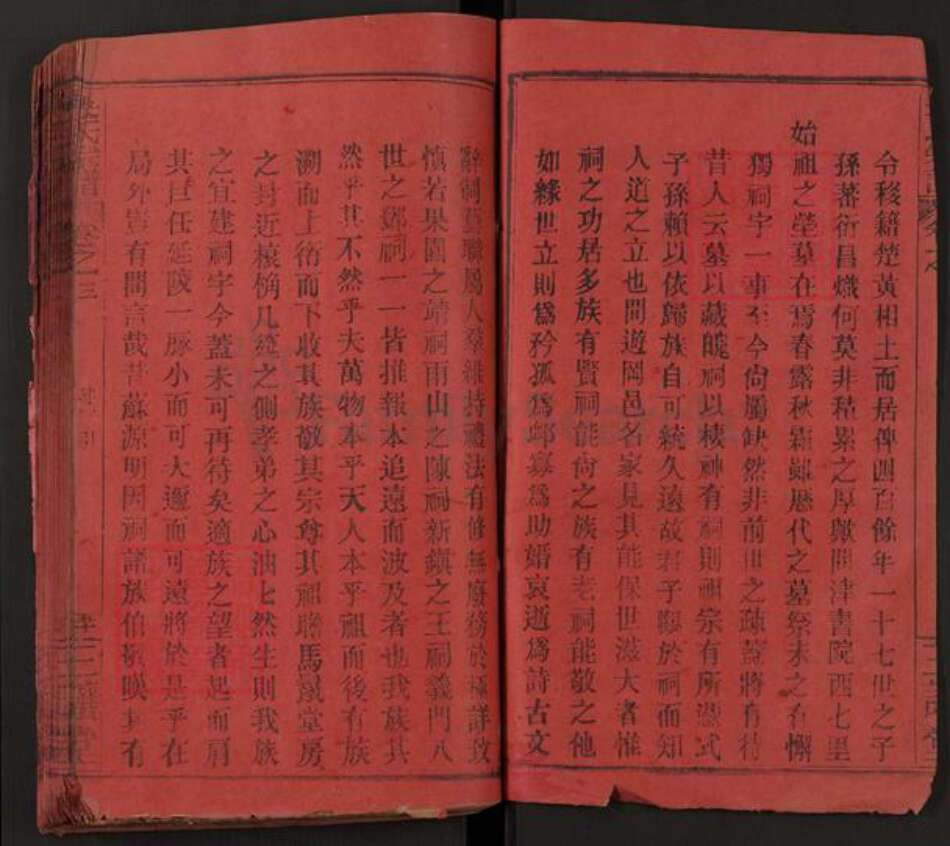 今移籍楚黃相土而居俾四百餘年一十七世之子
孫蕃衍昌熾何莫非積累之厚歟問津書院西七里
始祖之塋墓在焉春露秋霜雖歷代之墓祭未之有懈
獨祠宇一事至今尙屬缺然非前世之疎葢將有待
昔人云墓以藏魄祠以棲神有祠則祖宗有所憑式
子孫賴以依歸族自可統久遠故君子臨於祠而知
人道之立也間遊岡邑名家見其能保世滋大者惟
祠之功居多族有賢祠能尙之族有老祠能敬之他
如緣世立則爲矜孤爲邺寡爲助婚哀逝爲詩古文
辭制藝聯屬人羣維持禮法有修無廢務於極詳致
慎若果園之靖祠雨山之陳祠新鎭之王祠義門八
世之鄧祠一一皆推報本追遠而波及者也我族其
然乎其不然乎夫萬物本乎天人本乎祖而後有族
溯而上衍而下收其族敬其宗尊其祖聯馬鬛堂房
之封近榱桷几筵之側孝弟之心油七然生則我族
之宜建祠宇今蓋未可再待矣適族之望者起而肩
其巨任延陵一脉小而可大邇而可遠將於是乎在
局外豈有間言哉昔蘇源明因祠諸族伯
其有